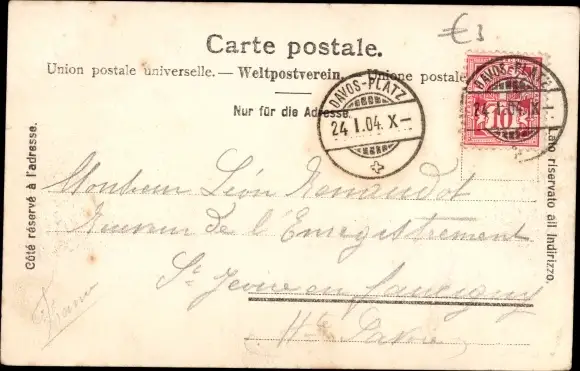 €3
Carte postale.
Union postale universelle. — Weltpostverein. Unione postale
Nur für die Adresse.
DAVOS-PLATZ
24. I. 04. X —
DAVOS-PLATZ
24. I. 04. X —
10
Côté réservé à l'adresse.
Lato riservato all Indirizzo.
Monsieur Léon Renaudot
Receveur de l'Enregistrement
St Jeoire en Faucigny
Hte Savoie